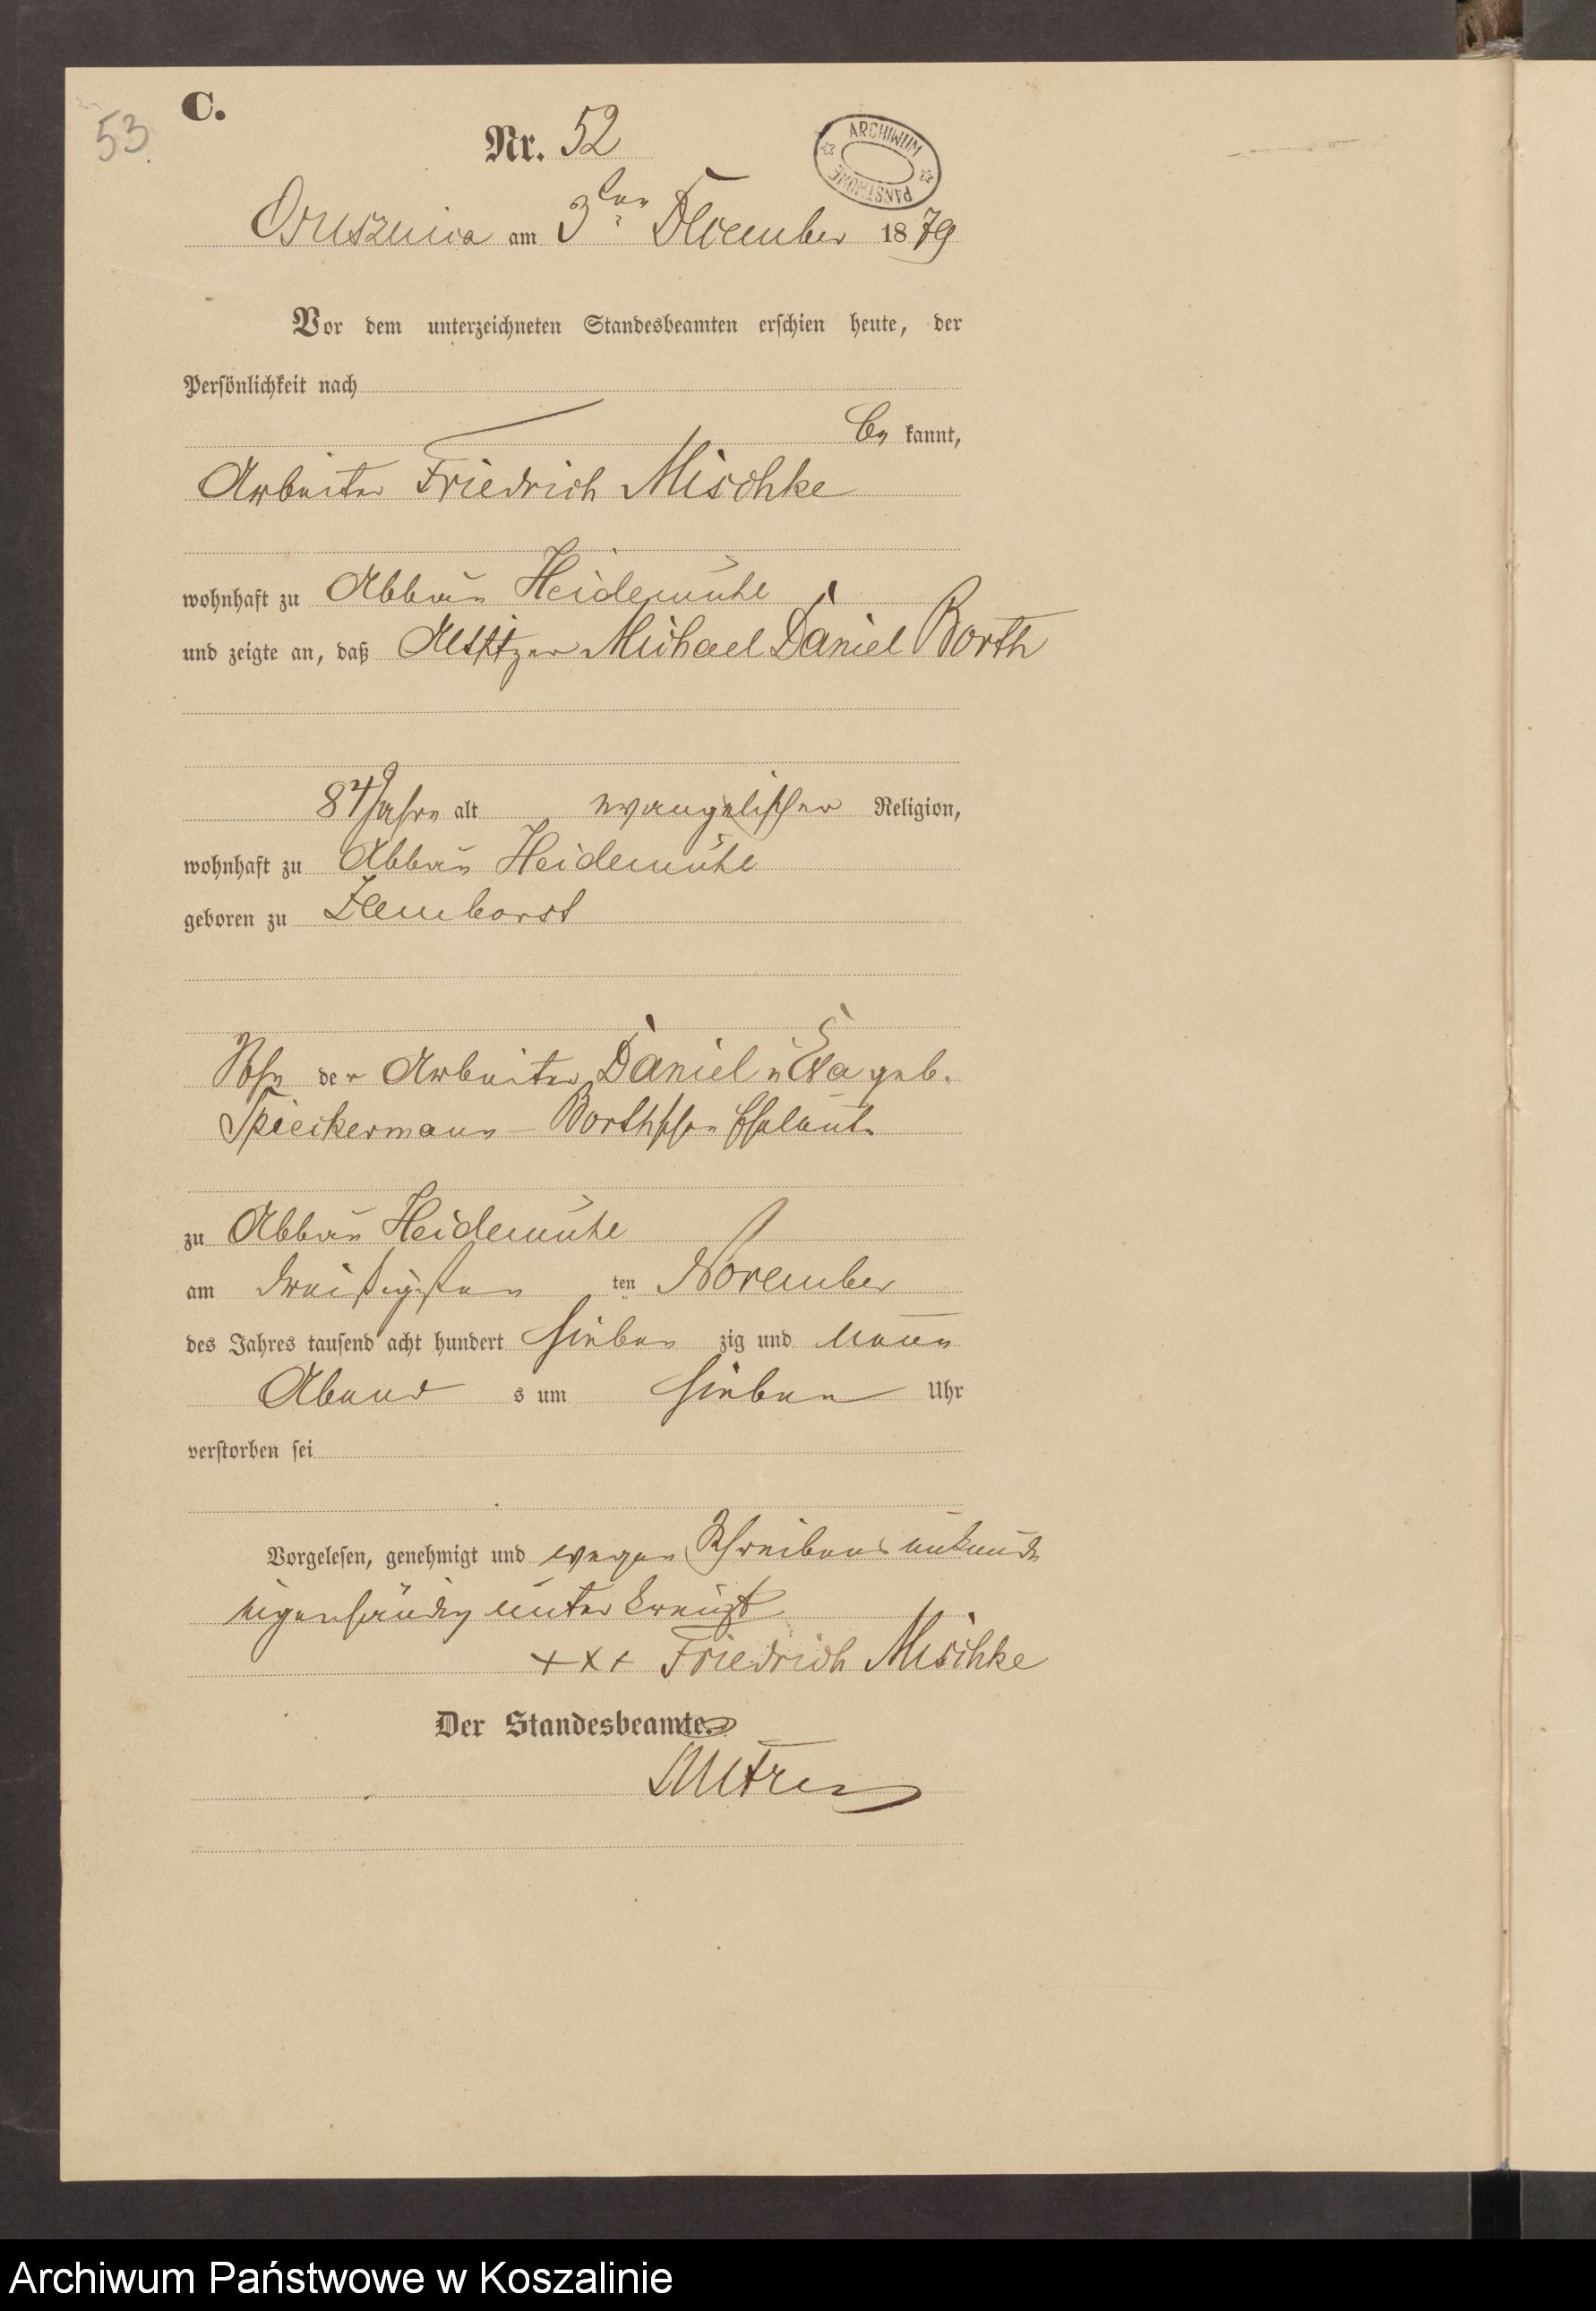 C.
53.
Nr. 52
ARCHIWUM PAŃSTWOWE
am 3ten December 1879
Vor dem unterzeichneten Standesbeamten erschien heute, der
Persönlichkeit nach
be kannt,
Arbeiter Friedrich Mischke
wohnhaft zu Abbau Heidemühl
und zeigte an, daß Altsitzer Michael Daniel Borth
84 Jahre alt evangelischer Religion,
wohnhaft zu Abbau Heidemühl
geboren zu
Sohn der Arbeiter Daniel u Eva geb.
Spieckermann - Borthschen Eheleute
zu Abbau Heidemühl
am dreißigsten ten November
des Jahres tausend acht hundert sieben zig und neun
Abend s um sieben Uhr
verstorben sei
Vorgelesen, genehmigt und wegen Schreibens unkunde
eigenhändig unterkreuzt
+++ Friedrich Mischke
Der Standesbeamte.
Archiwum Państwowe w Koszalinie